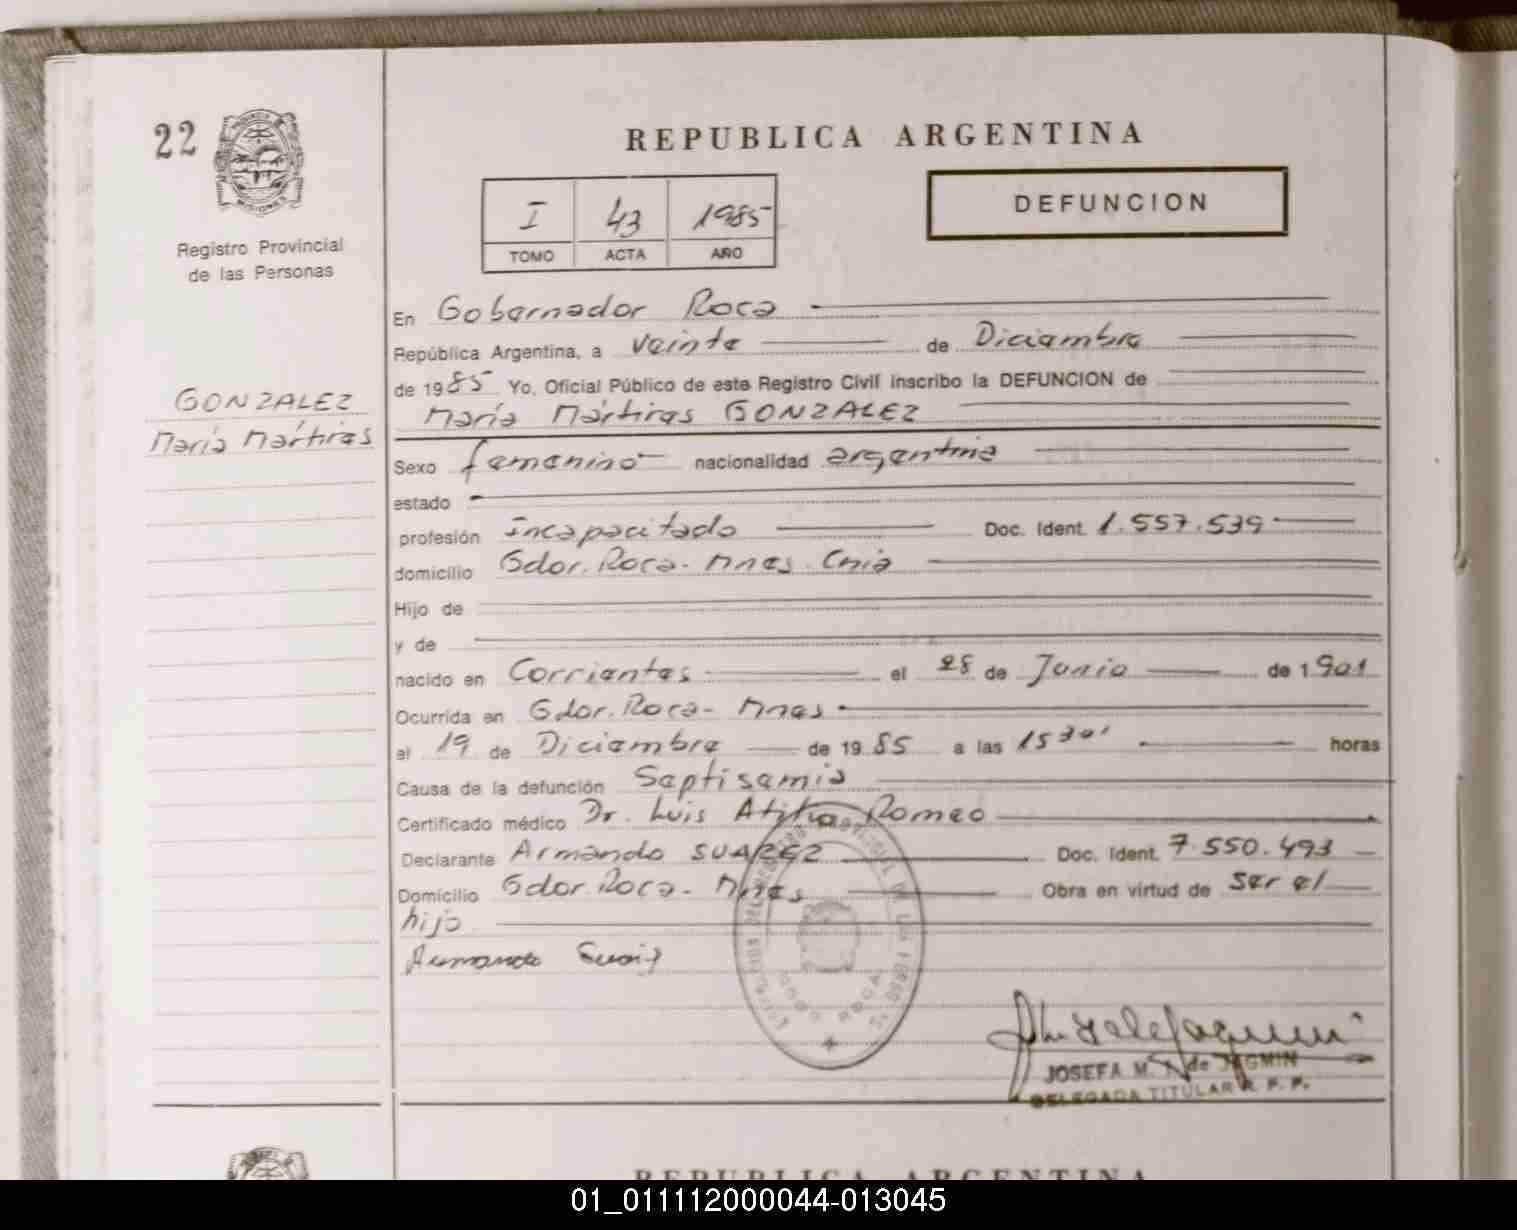 22
PROVINCIA DE
MISIONES
Registro Provincial
de las Personas
GONZALEZ
María Mártires
REPUBLICA ARGENTINA
I 43 1985
TOMO ACTA AÑO
DEFUNCION
En Gobernador Roca
República Argentina, a veinte de Diciembre
de 1985 Yo, Oficial Público de este Registro Civil inscribo la DEFUNCION de
María Mártires GONZALEZ
Sexo femenino nacionalidad argentina
estado
profesión Incapacitado Doc. Ident. 1.557.539
domicilio Gdor. Roca - Mnes.
Hijo de
y de
nacido en Corrientes el 28 de Junio de 1901
Ocurrida en Gdor. Roca - Mnes
el 19 de Diciembre de 1985 a las 1530' horas
Causa de la defunción Septisemia
Certificado médico Dr. Luis Romeo
Declarante Armando SUAREZ Doc. Ident. 7.550.493
Domicilio Gdor. Roca - Mnes Obra en virtud de ser el
hijo
Armando
JOSEFA M. de JAGMIN
DELEGADA TITULAR R. P. P.
REPUBLICA ARGENTINA
01_011112000044-013045